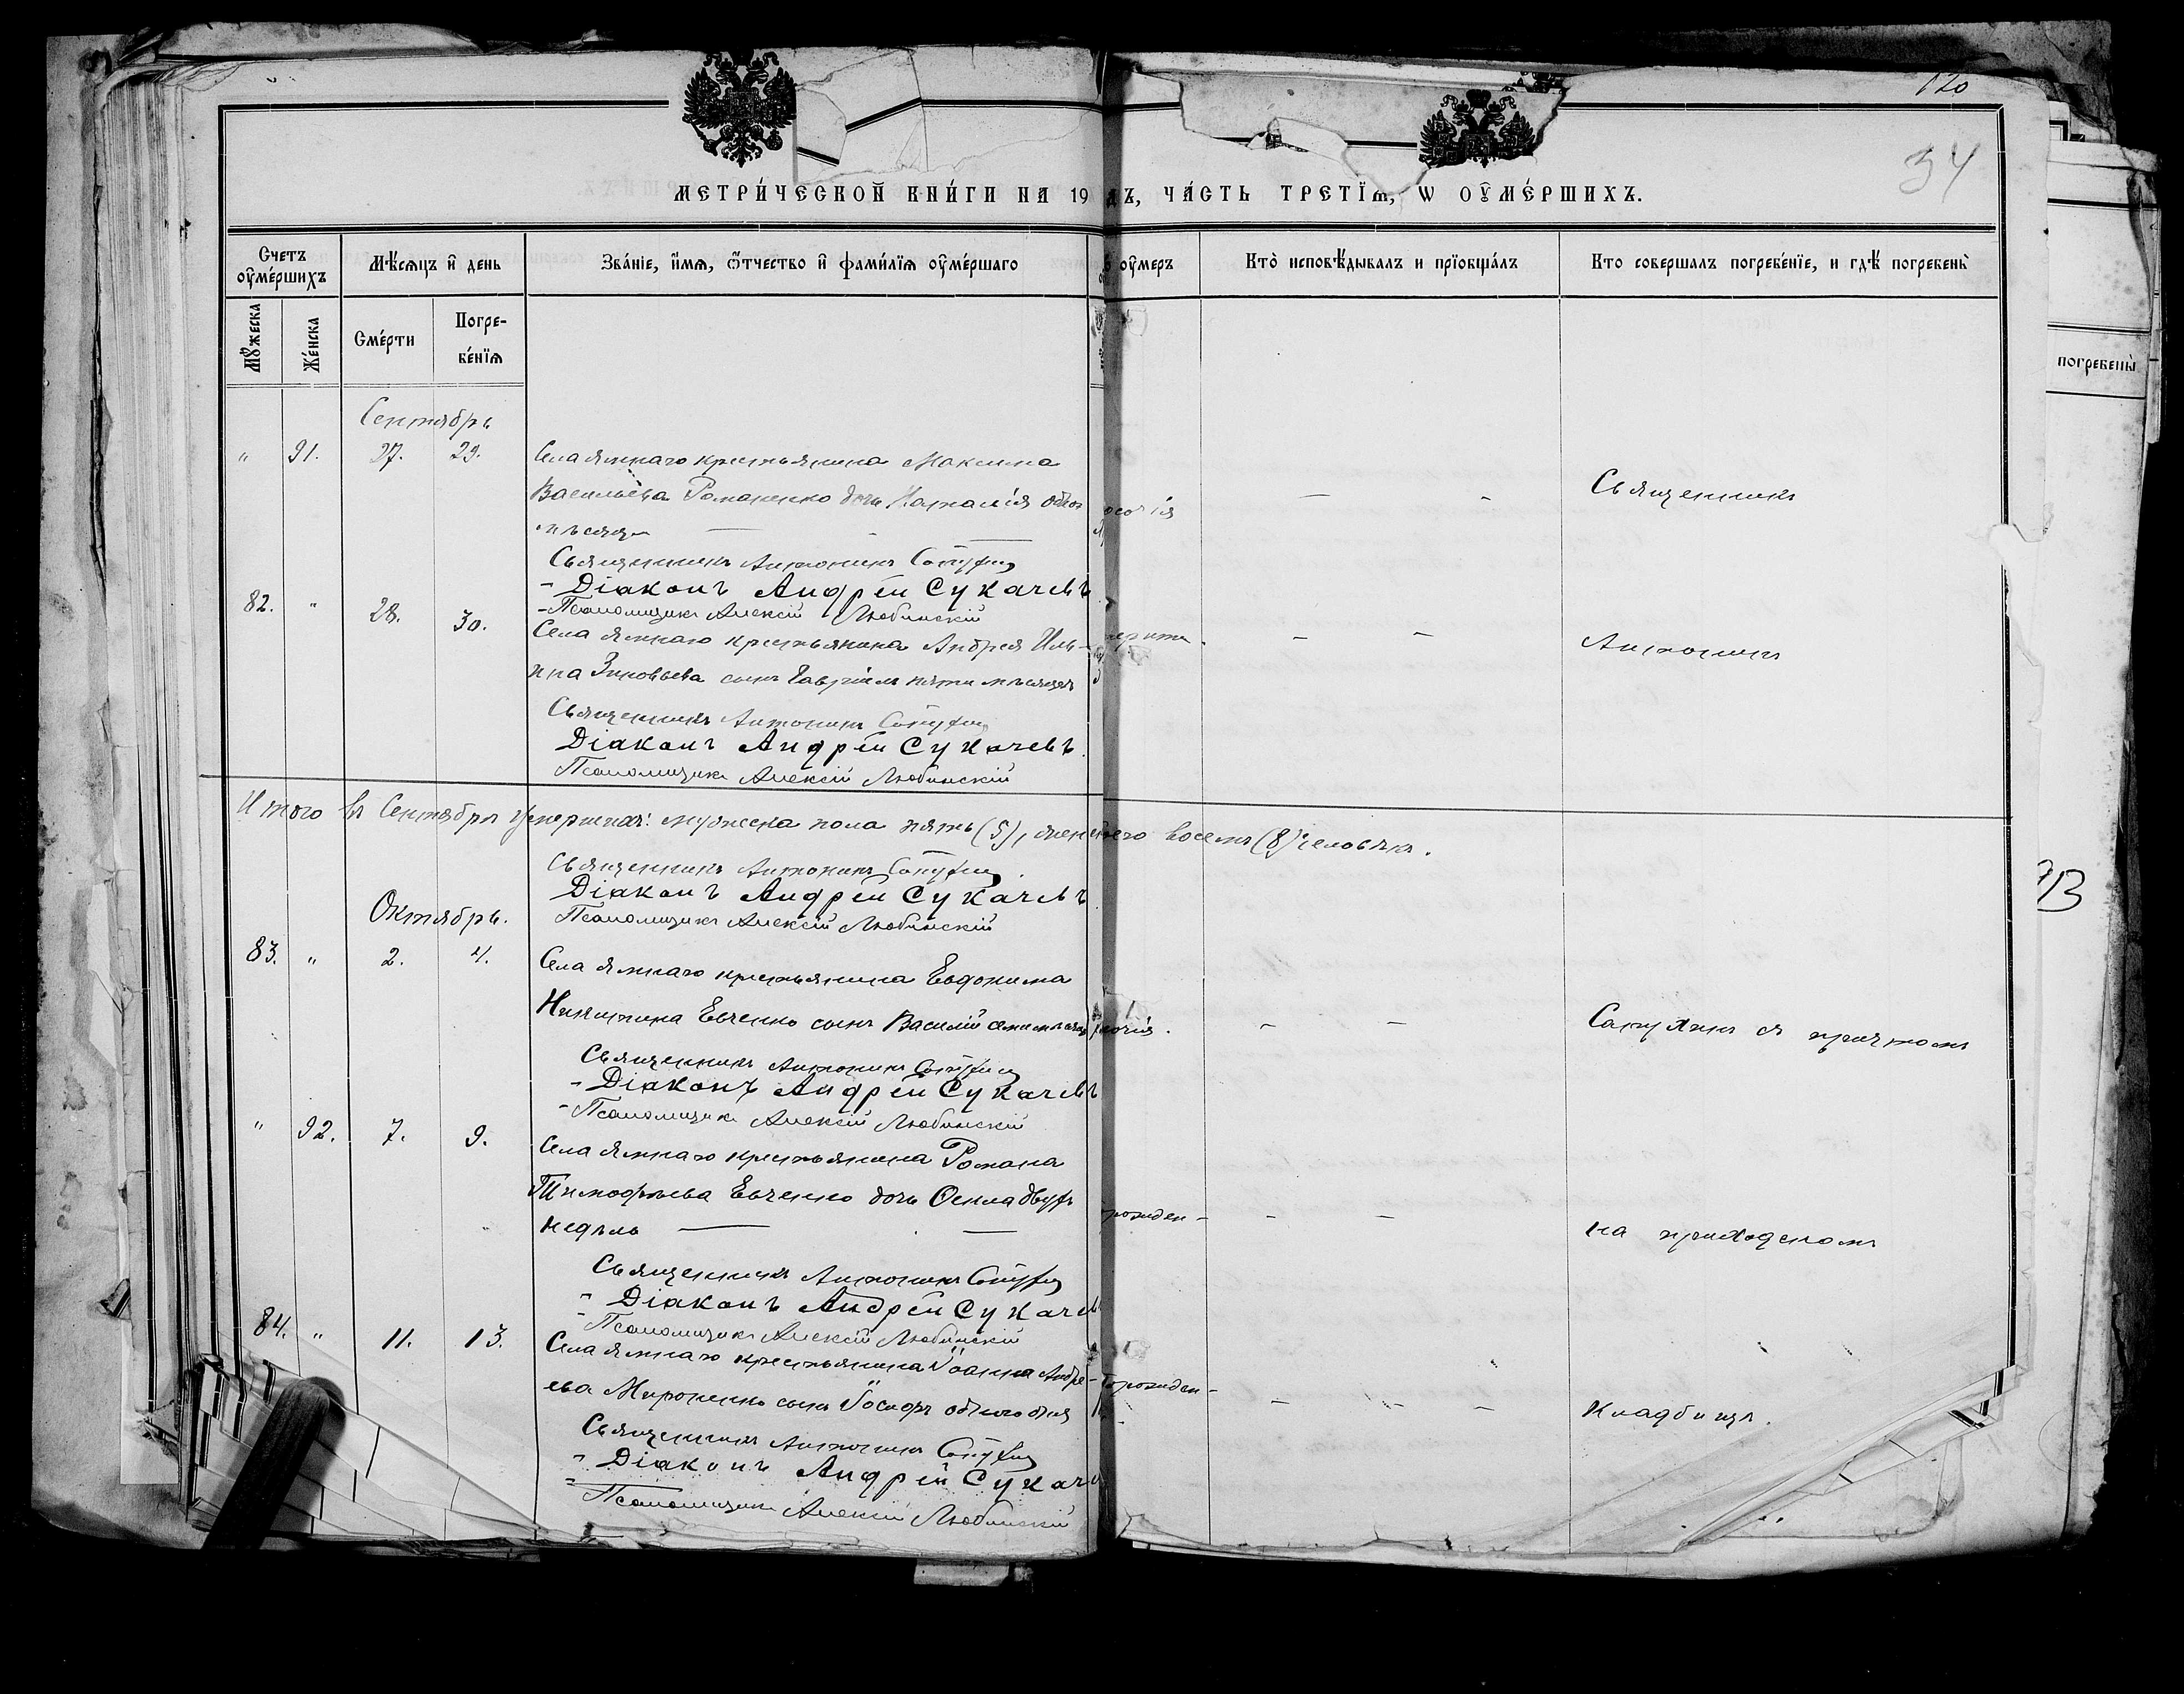 120
34
МЕТРИ́ЧЕСКОЙ КНИ́ГИ НА 19 дъ, ЧА́СТЬ ТРЕТЇѦ, Ѡ ОУ҆МЕ́РШИХЪ.
Счетъ оу҆ме́ршихъ
Мѣ́сяцъ и҆ день
Зва́нїе, и҆́мѧ, ѻ҆́тчество и҆ фами́лїѧ оу҆ме́ршаго
оу҆меръ
Кто̀ исповѣ́дывалъ и прїобща́лъ
Кто совершалъ погребе́нїе, и гдѣ̀ погребены̀
погребены̀
Мꙋ́жеска
Же́нска
Сме́рти
Погребе́нїѧ
Сентябрь
" 91. 27. 29. Села Ямнаго крестьянина Максима
Васильева Романенко дочь Наталія одного
мѣсяца — —
Священникъ
Священникъ Антонинъ
- Діаконъ Андрей Сукачевъ
- Псаломщикъ Алексій Любинскій
82. " 28. 30. Села Ямнаго крестьянина Андрея Иль-
ина Зиновьева сынъ Гавріилъ пяти мѣсяцевъ
Антонинъ
Священникъ Антонинъ
Діаконъ Андрей Сукачевъ.
Псаломщикъ Алексій Любинскій
Итого въ Сентябрѣ умершихъ: мужеска пола пять (5), женскаго восемь (8) человѣкъ.
Священникъ Антонинъ
Діаконъ Андрей Сукачевъ
Псаломщикъ Алексій Любинскій
Октябрь.
83. " 2. 4. Села Ямнаго крестьянина Евдокима
Никитина Евченко сынъ Василій семи мѣсяц
съ причтомъ
Священникъ Антонинъ
- Діаконъ Андрей Сукачевъ
- Псаломщикъ Алексій Любинскій
" 92. 7. 9. Села Ямнаго крестьянина Романа
Тимофѣева Евченко дочь Ѳекла двухъ
рожден-
недѣль — —
на приходскомъ
Священникъ Антонинъ
- Діаконъ Андрей Сукачев
- Псаломщикъ Алексій Любинскій
84. " 11. 13. Села Ямнаго крестьянина Іоанна Андре-
рожден-
ева Мироненко сынъ Іосифъ одного дня
кладбищѣ.
Священникъ Антонинъ
- Діаконъ Андрей Сукачев
- Псаломщикъ Алексій Любинскій